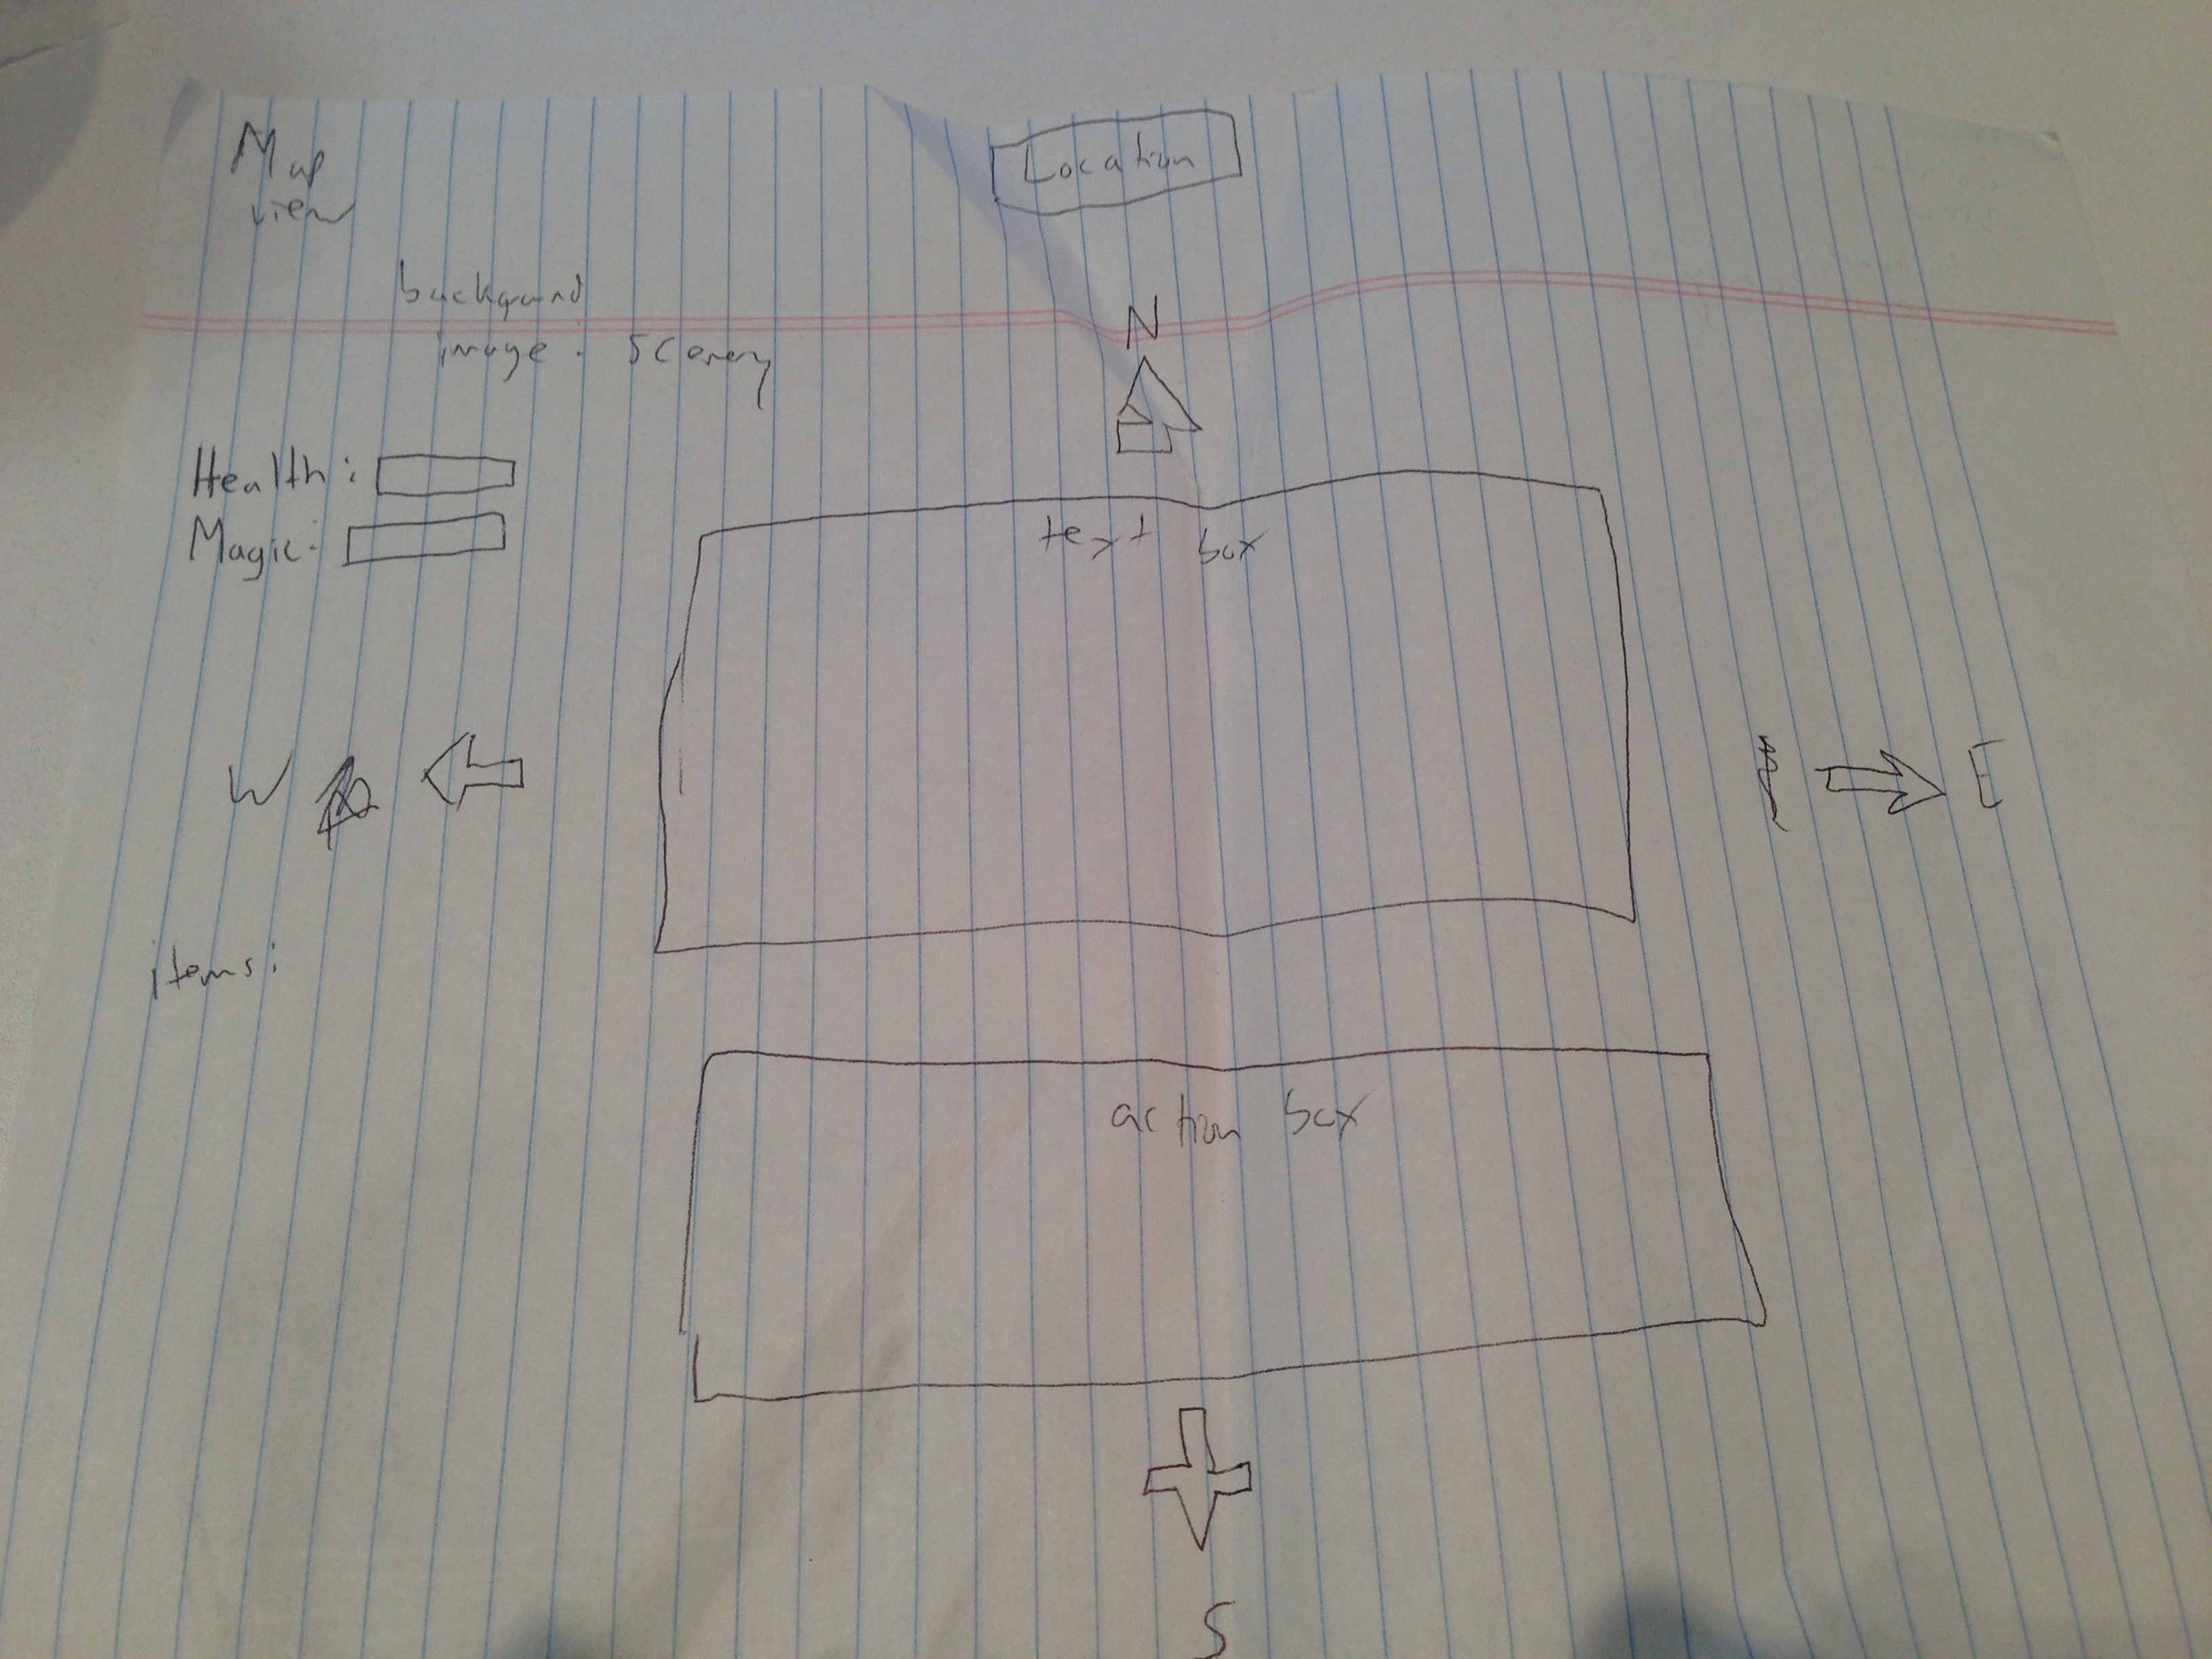 Map
view
Location
backgound
image: Scenery
N
Health:
Magic:
text box
W
E
items:
action box
S